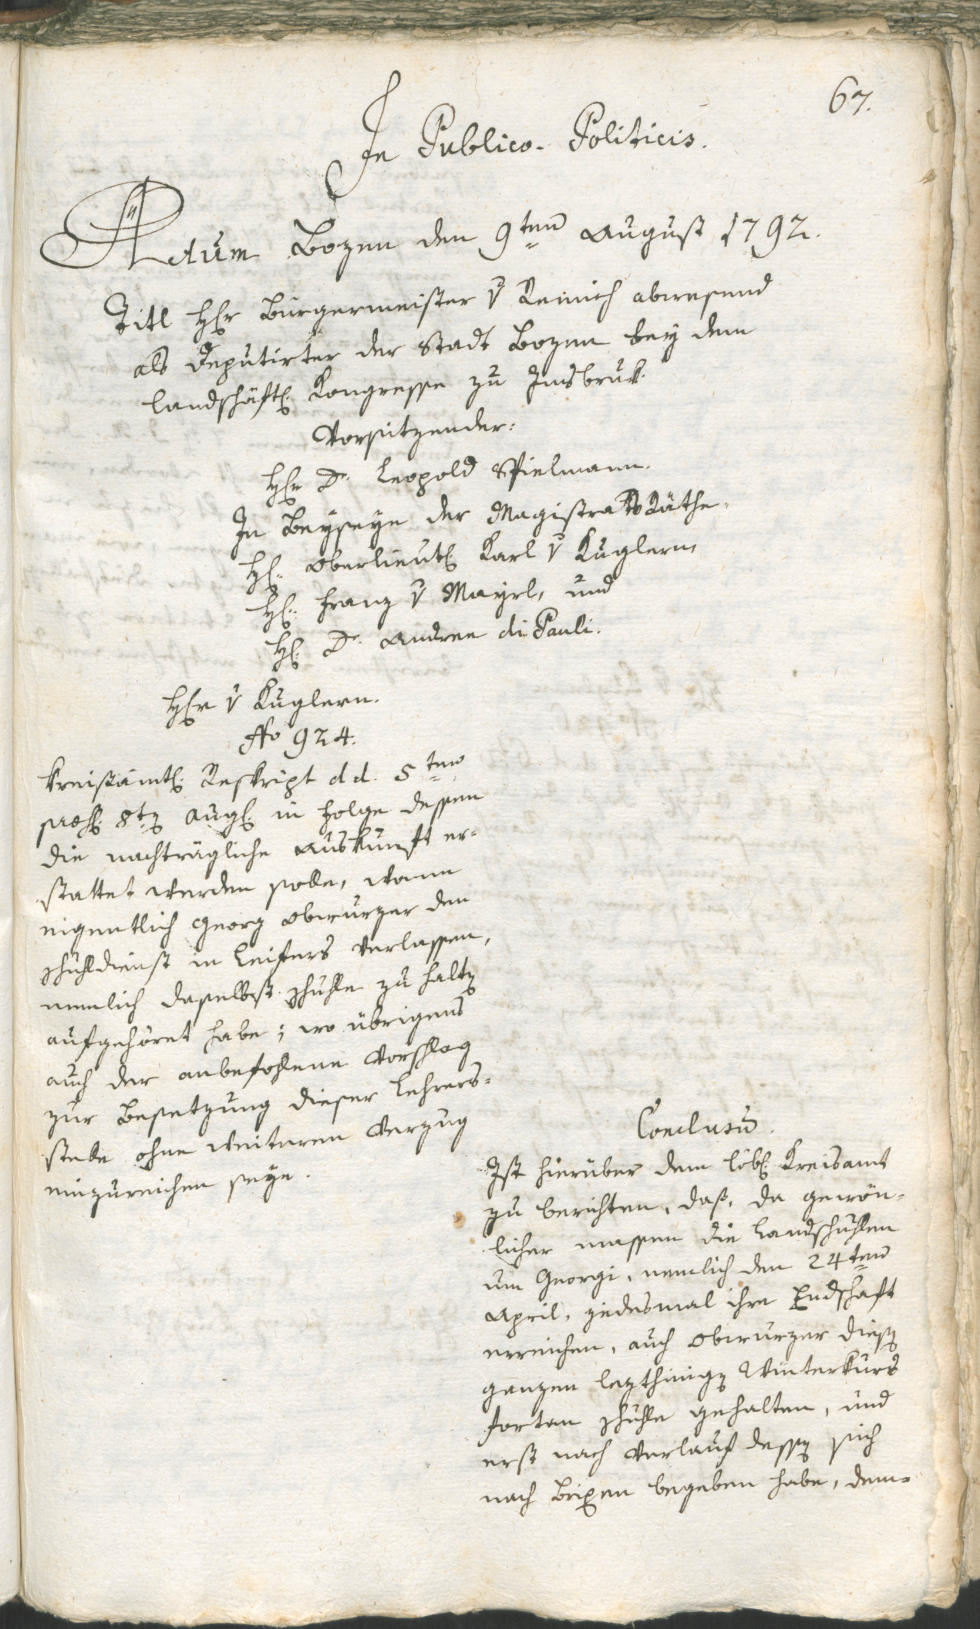 67.
In Publico-Politicis.
Actum Bozen den 9ten August 1792.
Titl Hhr Bürgermeister v Remich abwesend
als Deputirter der Stadt Bozen bey dem
landschäftl: Kongresse zu Innsbruk.
Vorsitzender:
Hhr Dr. Leopold Spielmann.
In Beyseyn der MagistratsRäthe.
Hl: Oberlieutl: Karl v Kuglern,
Hl: Franz v Mayrl, und
Hl: Dr. Andree di Pauli.
Hhr v Kuglern.
No 924.
Kreisämtl: Reskript d d. 5ten
præs: 8ten Augl: in Folge dessen
die nachträgliche Auskunft er-
stattet werden solle, wann
eigentlich Georg Obwurzer den
Schuldienst in Leifers verlassen,
nemlich daselbst Schulle zu halten
aufgehöret habe; wo übrigens
auch der anbefohlene Vorschlag
zur Besetzung dieser Lehrers-
stelle ohne weiteren Verzug
einzureichen seye.
Conclusum.
Ist hierüber dem löbl: Kreisamt
zu berichten, daß, da gewön-
licher massen die Landschullen
um Georgi, nemlich den 24ten
April, jedesmal ihre Endschaft
erreichen, auch Obwurzer diesen
ganzen lezthinigen Winterkurs
fortan Schulle gehalten, und
erst nach Verlauf dessen sich
nach Brixen begeben habe, dem-